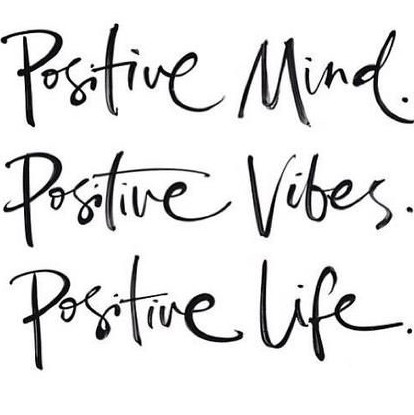 Positive Mind.
Positive Vibes.
Positive Life.